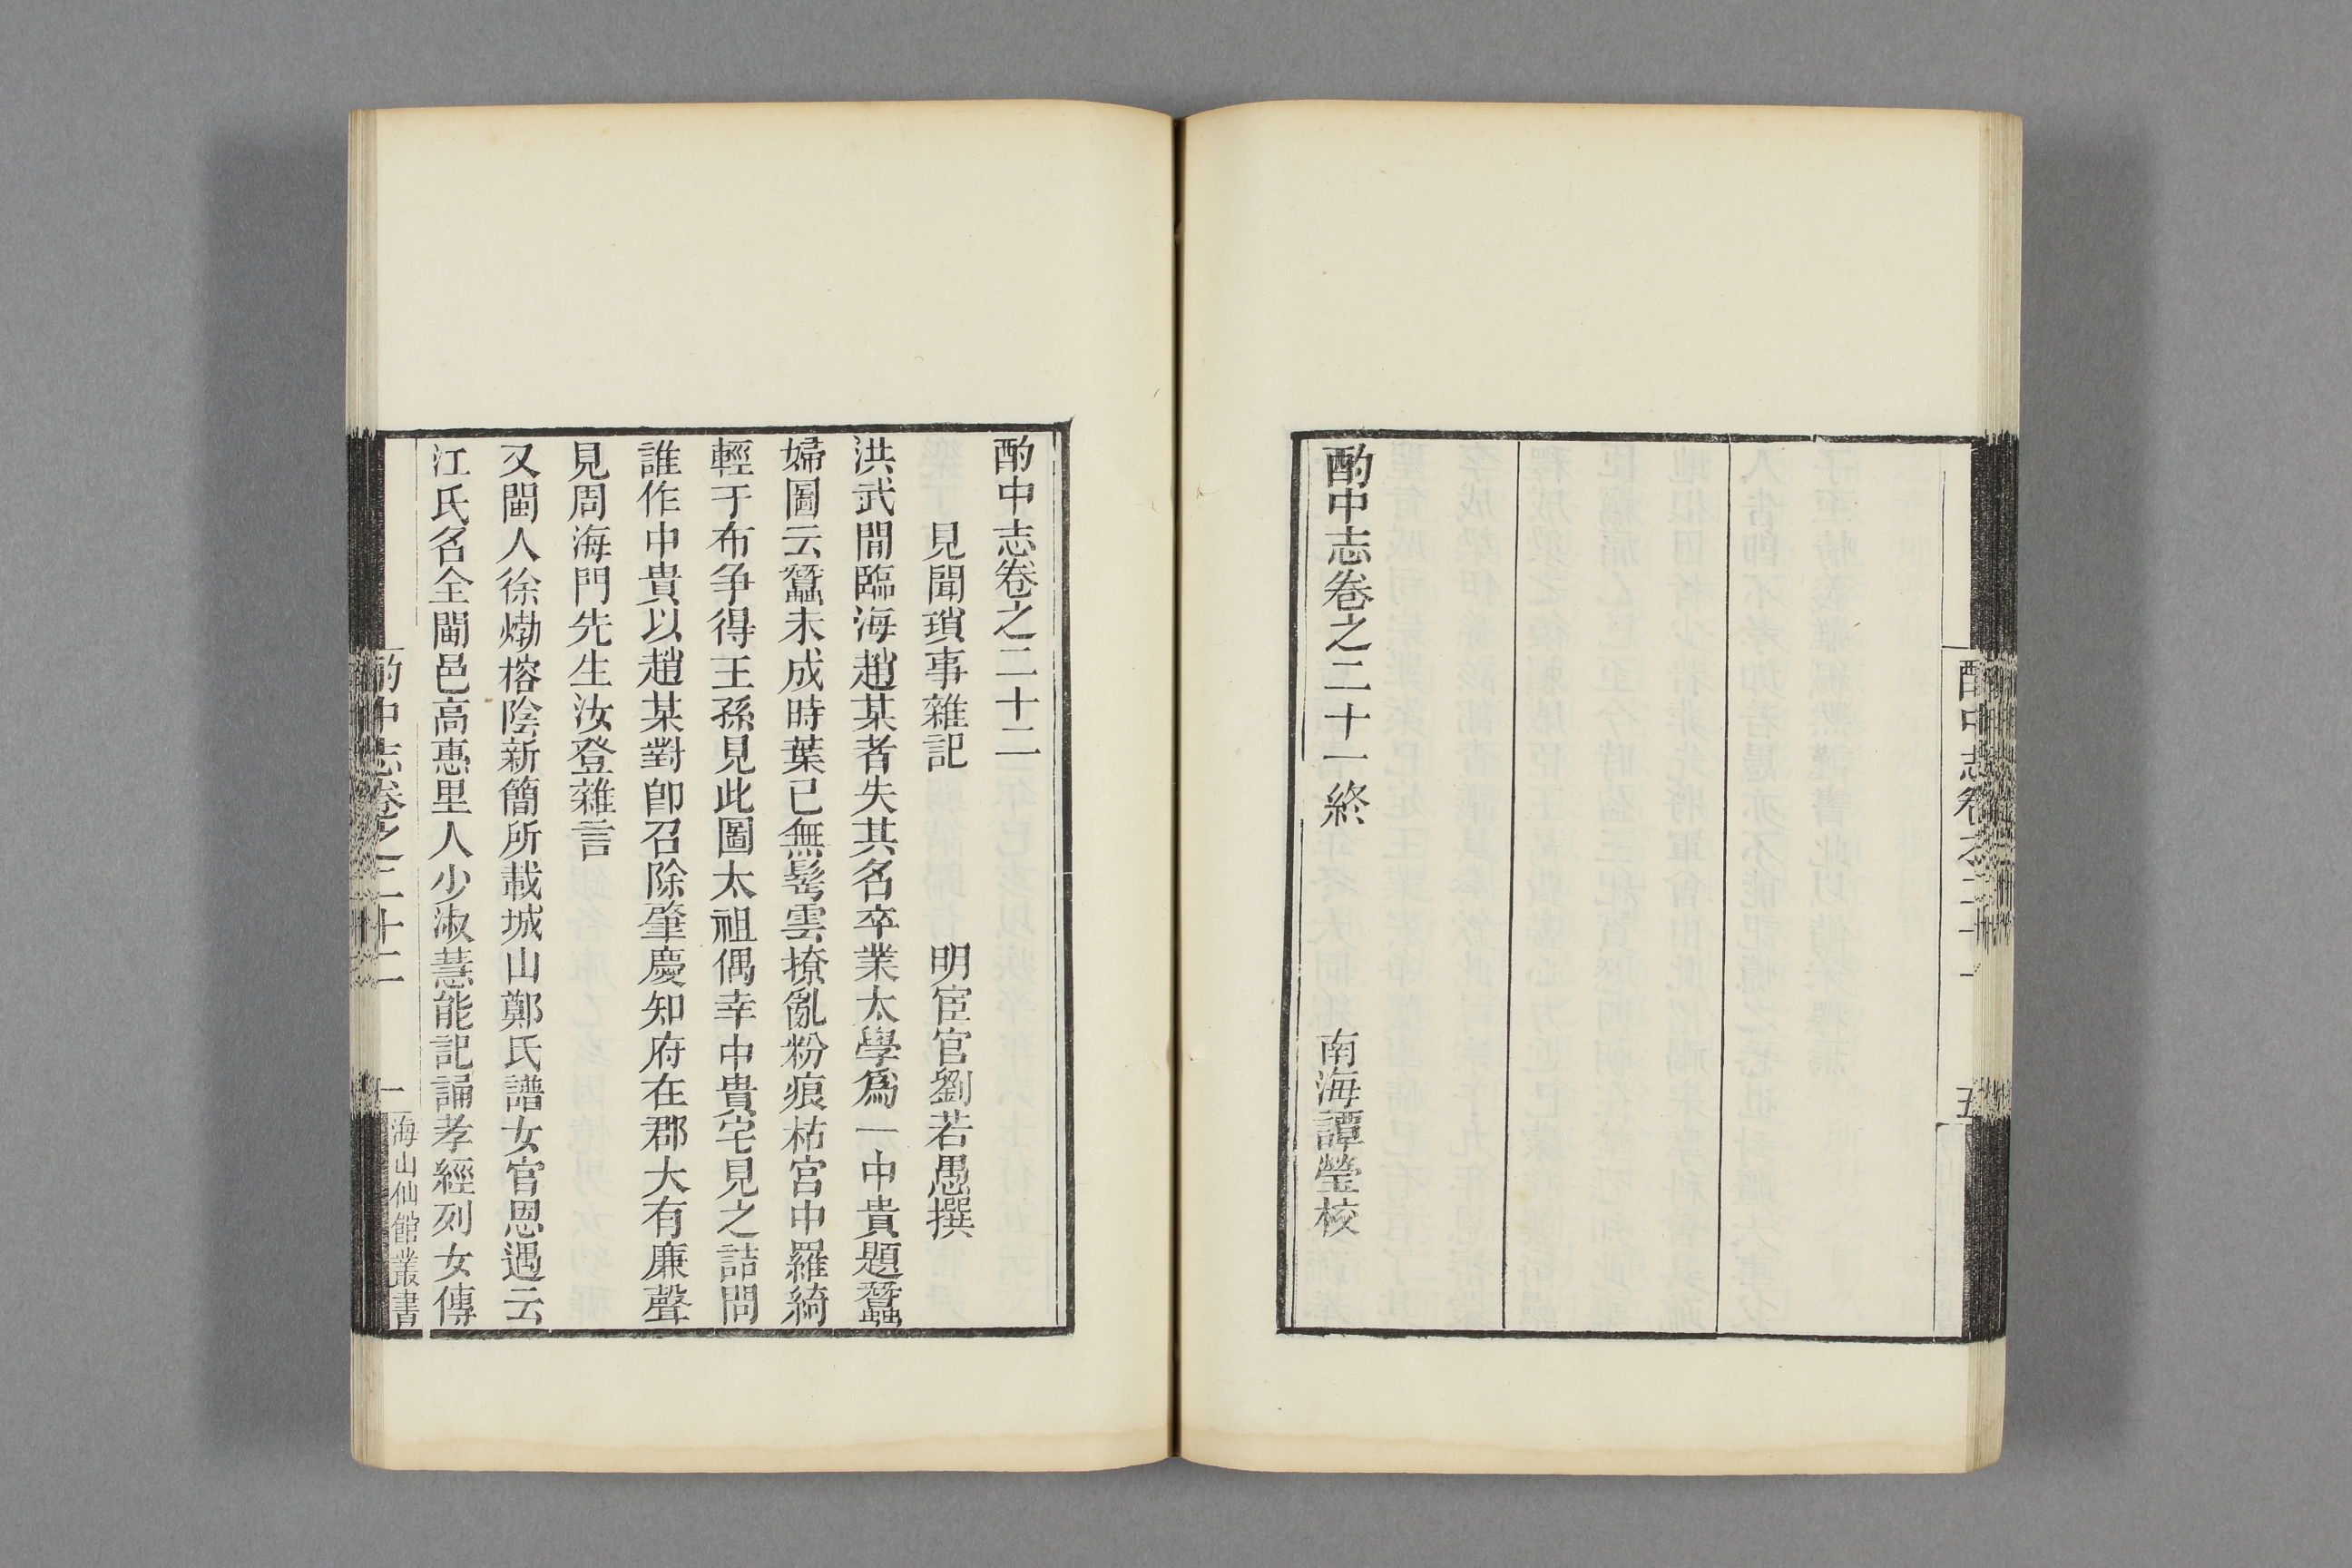 酌中志卷之二十一
五
酌中志卷之二十一終
南海譚瑩校
酌中志卷之二十二
見聞瑣事雜記
明宦官劉若愚撰
洪武間臨海趙某者失其名卒業太學爲一中貴題蠶
婦圖云蠶未成時葉已無鬂雲撩亂粉痕枯宮中羅綺
輕于布争得王孫見此圖太祖偶幸中貴宅見之詰問
誰作中貴以趙某對卽召除肇慶知府在郡大有廉聲
見周海門先生汝登雜言
又閩人徐𤊹榕陰新簡所載城山鄭氏譜女官恩遇云
江氏名全閩邑高惠里人少淑慧能記誦孝經列女傳
酌中志卷之二十二
一
海山仙館叢書